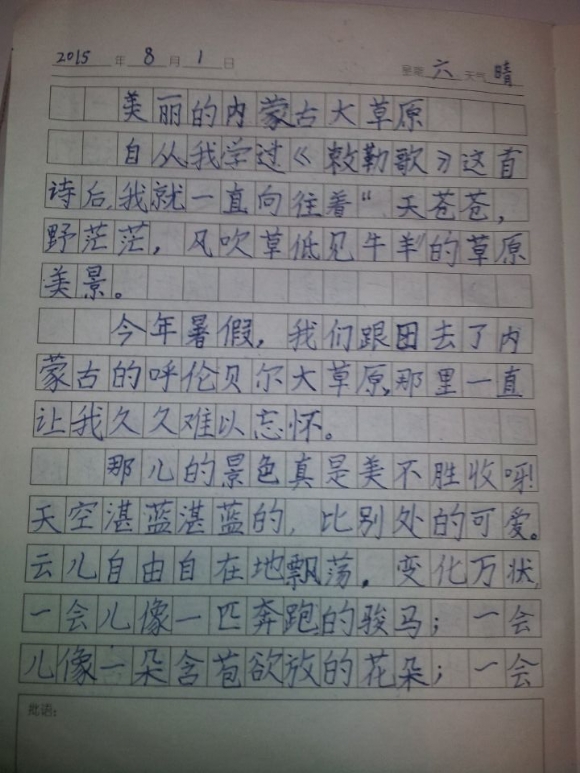 2015 年 8 月 1 日 星期 六 天气 晴
美丽的内蒙古大草原
自从我学过《敕勒歌》这首
诗后,我就一直向往着“天苍苍,
野茫茫,风吹草低见牛羊”的草原
美景。
今年暑假,我们跟团去了内
蒙古的呼伦贝尔大草原,那里一直
让我久久难以忘怀。
那儿的景色真是美不胜收呀!
天空湛蓝湛蓝的,比别处的可爱。
云儿自由自在地飘荡,变化万状,
一会儿像一匹奔跑的骏马;一会
儿像一朵含苞欲放的花朵;一会
批语: